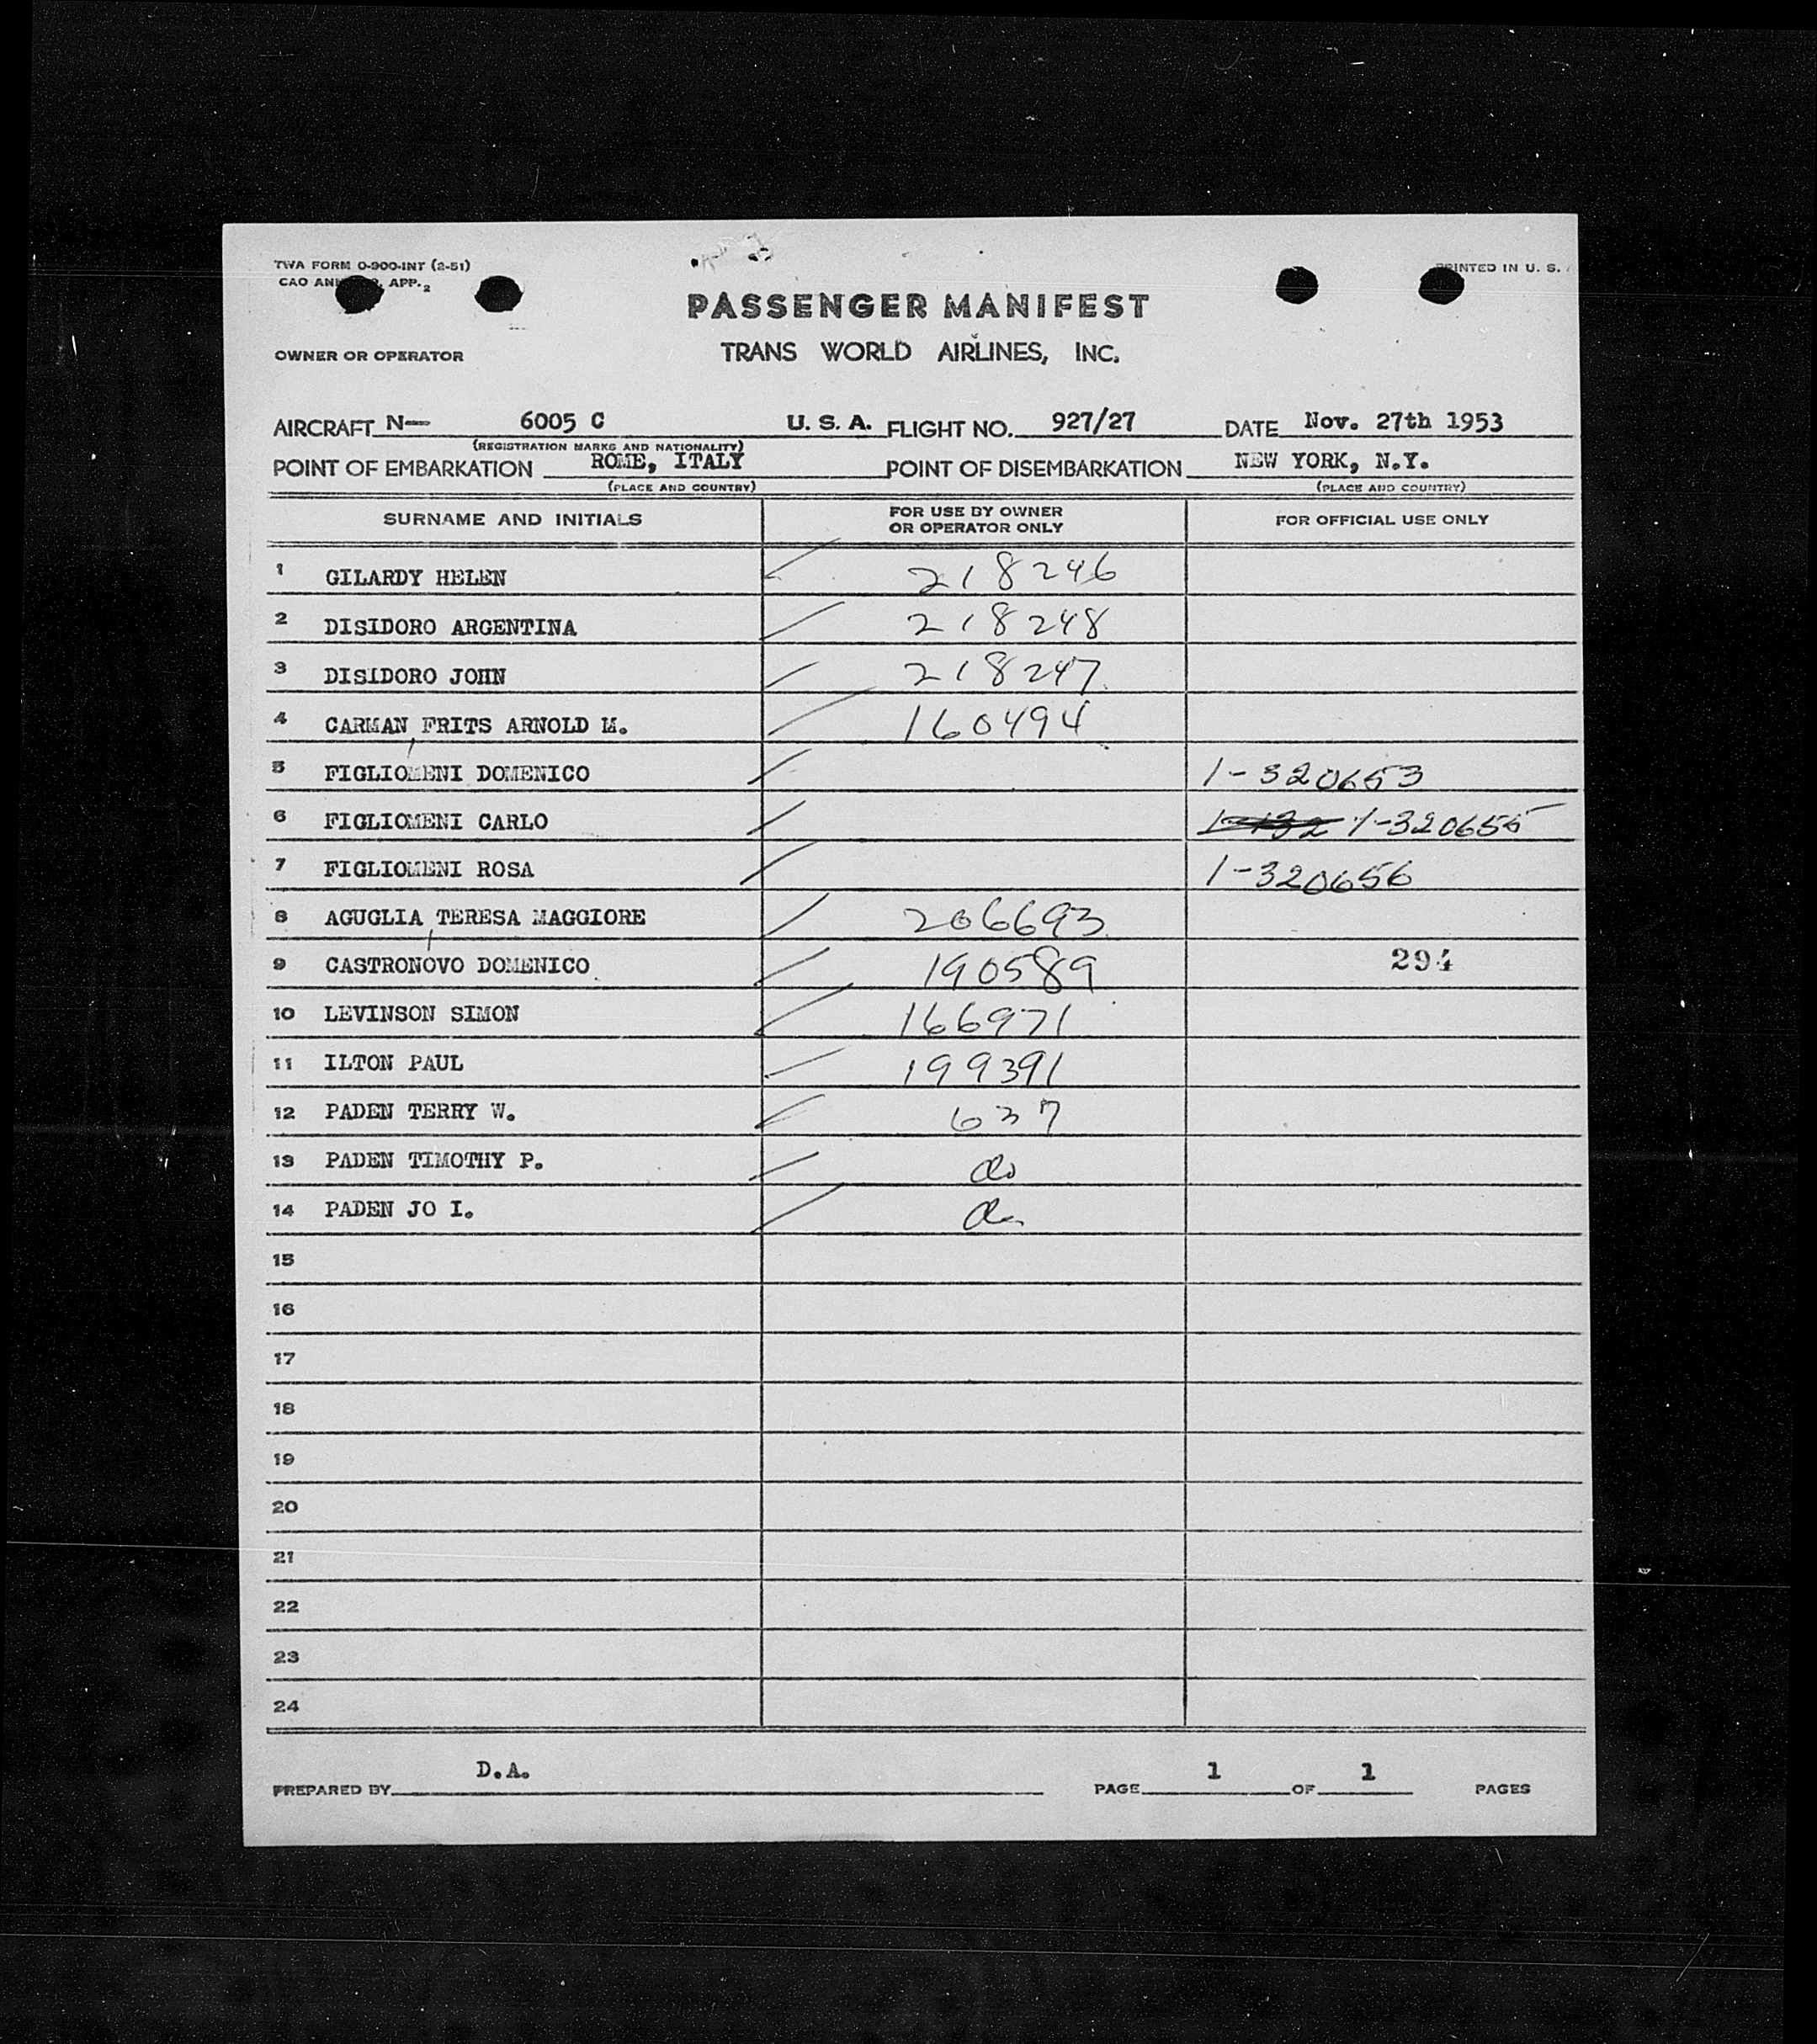 TWA FORM O-900-INT (2-51)
PRINTED IN U. S.
CAO APP. 2
PASSENGER MANIFEST
OWNER OR OPERATOR TRANS WORLD AIRLINES, INC.
AIRCRAFT N— 6005 C U. S. A. FLIGHT NO. 927/27 DATE Nov. 27th 1953
(REGISTRATION MARKS AND NATIONALITY)
POINT OF EMBARKATION ROME, ITALY POINT OF DISEMBARKATION NEW YORK, N.Y.
(PLACE AND COUNTRY) (PLACE AND COUNTRY)
SURNAME AND INITIALS FOR USE BY OWNER OR OPERATOR ONLY FOR OFFICIAL USE ONLY
1 GILARDY HELEN 218246
2 DISIDORO ARGENTINA 218248
3 DISIDORO JOHN 218247
4 CARMAN, FRITS ARNOLD M. 160494
5 FIGLIOMENI DOMENICO 1-320653
6 FIGLIOMENI CARLO 1-320655
7 FIGLIOMENI ROSA 1-320656
8 AGUGLIA, TERESA MAGGIORE 206693
9 CASTRONOVO DOMENICO 190589 294
10 LEVINSON SIMON 166971
11 ILTON PAUL 199391
12 PADEN TERRY W. 637
13 PADEN TIMOTHY P. do
14 PADEN JO I. do
15
16
17
18
19
20
21
22
23
24
PREPARED BY D.A. PAGE 1 OF 1 PAGES